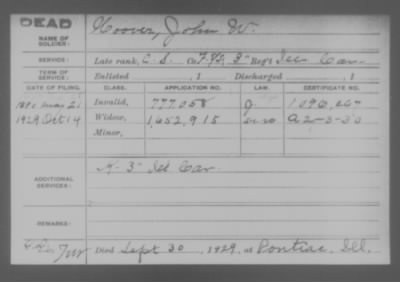 DEAD
NAME OF SOLDIER: Hoover, John W.
SERVICE: Late rank, C. S. Co. F. & S., 3" Reg't Ill Cav.
TERM OF SERVICE: Enlisted , 1 Discharged , 1
DATE OF FILING. CLASS. APPLICATION NO. LAW. CERTIFICATE NO.
May 21 Invalid, 777.058 g. 1096,
1929 Oct 14 Widow, 1,652,915 A 2-3-30
Minor,
ADDITIONAL SERVICES: K- 3" Ill Cav.
REMARKS:
Died Sept 30, 1929, at Pontiac, Ill.